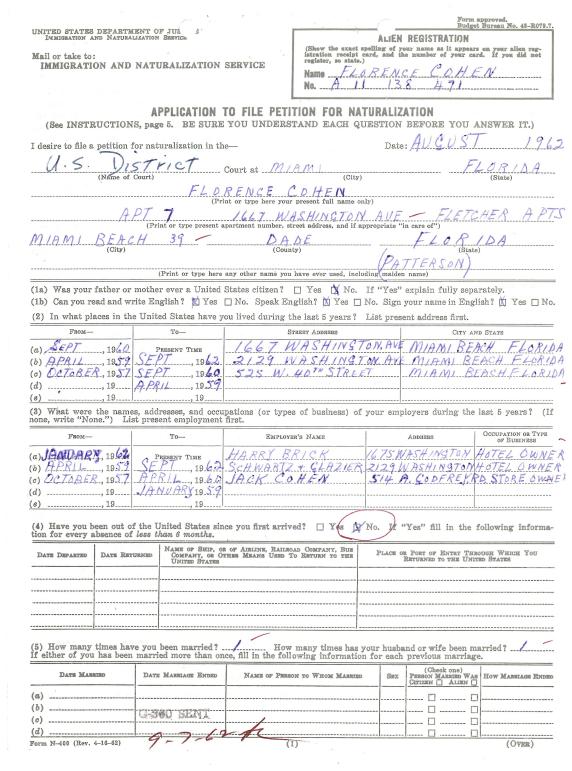 Form approved.
Budget Bureau No. 43-R079.7.
UNITED STATES DEPARTMENT OF
IMMIGRATION AND NATURALIZATION SERVICE
Mail or take to:
IMMIGRATION AND NATURALIZATION SERVICE
ALIEN REGISTRATION
(Show the exact spelling of your name as it appears on your alien registration receipt card, and the number of your card. If you did not register, so state.)
Name FLORENCE COHEN
No. A 11 138 491
APPLICATION TO FILE PETITION FOR NATURALIZATION
(See INSTRUCTIONS, page 5. BE SURE YOU UNDERSTAND EACH QUESTION BEFORE YOU ANSWER IT.)
I desire to file a petition for naturalization in the— Date: AUGUST 1962
U.S. District Court at MIAMI FLORIDA
(Name of Court) (City) (State)
FLORENCE COHEN
(Print or type here your present full name only)
APT 7 1667 WASHINGTON AVE — FLETCHER APTS
(Print or type present apartment number, street address, and if appropriate "in care of")
MIAMI BEACH 39 — DADE FLORIDA
(City) (County) (State)
(PATTERSON)
(Print or type here any other name you have ever used, including maiden name)
(1a) Was your father or mother ever a United States citizen? Yes No. If "Yes" explain fully separately.
(1b) Can you read and write English? Yes No. Speak English? Yes No. Sign your name in English? Yes No.
(2) In what places in the United States have you lived during the last 5 years? List present address first.
FROM— TO— STREET ADDRESS CITY AND STATE
(a) SEPT, 1960 PRESENT TIME 1667 WASHINGTON AVE MIAMI BEACH FLORIDA
(b) APRIL, 1959 SEPT, 1962 2129 WASHINGTON AVE MIAMI BEACH FLORIDA
(c) OCTOBER, 1957 SEPT, 1960 525 W. 40TH STREET MIAMI BEACH FLORIDA
(d) , 19 APRIL, 1959
(e) , 19 , 19
(3) What were the names, addresses, and occupations (or types of business) of your employers during the last 5 years? (If none, write "None.") List present employment first.
FROM— TO— EMPLOYER'S NAME ADDRESS OCCUPATION OR TYPE OF BUSINESS
(a) JANUARY, 1962 PRESENT TIME HARRY BRICK 1675 WASHINGTON HOTEL OWNER
(b) APRIL, 1959 SEPT, 1962 SCHWARTZ + GLAZIER 2129 WASHINGTON HOTEL OWNER
(c) OCTOBER, 1957 APRIL, 1960 JACK COHEN 514 A. GODFREY RD. STORE OWNER
(d) , 19 JANUARY, 1959
(e) , 19 , 19
(4) Have you been out of the United States since you first arrived? Yes No. If "Yes" fill in the following information for every absence of less than 6 months.
DATE DEPARTED DATE RETURNED NAME OF SHIP, OR OF AIRLINE, RAILROAD COMPANY, BUS COMPANY, OR OTHER MEANS USED TO RETURN TO THE UNITED STATES PLACE OR PORT OF ENTRY THROUGH WHICH YOU RETURNED TO THE UNITED STATES
(5) How many times have you been married? 1 How many times has your husband or wife been married? 1
If either of you has been married more than once, fill in the following information for each previous marriage.
DATE MARRIED DATE MARRIAGE ENDED NAME OF PERSON TO WHOM MARRIED SEX (Check one) PERSON MARRIED WAS CITIZEN ALIEN HOW MARRIAGE ENDED
(a)
(b)
(c) G-360 SENT
(d)
9-7-62
Form N-400 (Rev. 4-16-62) (1) (OVER)